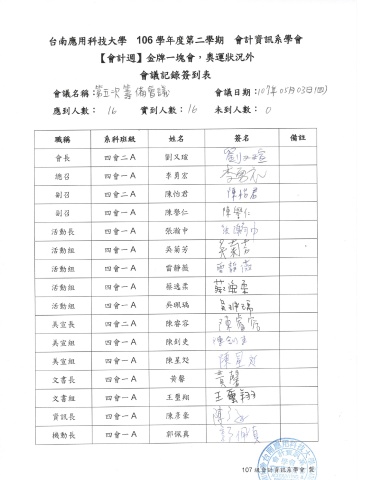 台南應用科技大學 106 學年度第二學期 會計資訊系學會
【會計週】金牌一塊會，奧運狀況外
會議記錄簽到表
會議名稱：第五次籌備會議 會議日期：107年05月03日(四)
應到人數： 16 實到人數：16 未到人數： 0
職稱 系科班級 姓名 簽名 備註
會長 四會二A 劉又瑄 劉又瑄
總召 四會一A 李勇宏 李勇宏
副召 四會二A 陳怡君 陳怡君
副召 四會一A 陳譽仁 陳譽仁
活動長 四會一A 張瀚中
活動組 四會一A 吳菊芳 吳菊芳
活動組 四會一A 雷靜薇 雷靜薇
活動組 四會一A 蔡逸柔
活動組 四會一A 吳珮瑀
美宣長 四會二A 陳睿容
美宣組 四會一A 陳釗吏
美宣組 四會一A 陳星彣
文書長 四會一A 黃馨 黃馨
文書組 四會一A 王璽翔 王璽翔
資訊長 四會一A 陳彥豪
機動長 四會一A 郭佩真 郭佩真
107 級會計資訊系學會 製